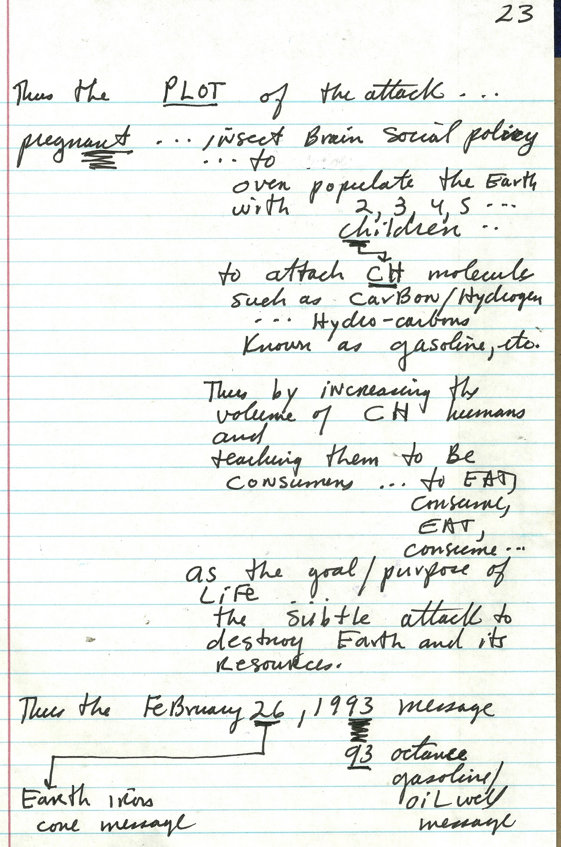 23
Thus the PLOT of the attack ...
pregnant ... insect Brain Social policy
... to
over populate the Earth
with 2, 3, 4, 5 ...
children ..
to attach CH molecule
such as CarBon/Hydrogen
... Hydro-carbons
Known as gasoline, etc.
Thus by increasing the
volume of CH humans
and
teaching them to Be
CONSUMERS ... to EAT,
consume,
EAT,
consume ...
as the goal/purpose of
LiFe ...
the subtle attack to
destroy Earth and its
Resources.
Thus the FeBruary 26, 1993 message
93 octance
gasoline/
oiL well
message
Earth irons
core message